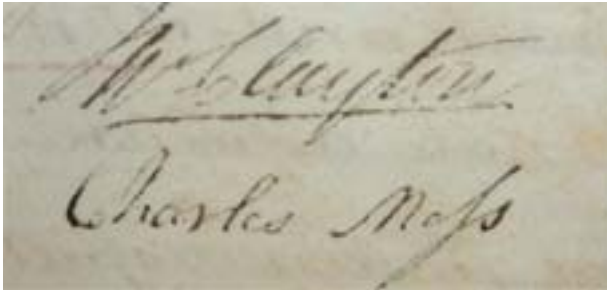 Clayton
Charles Moſs